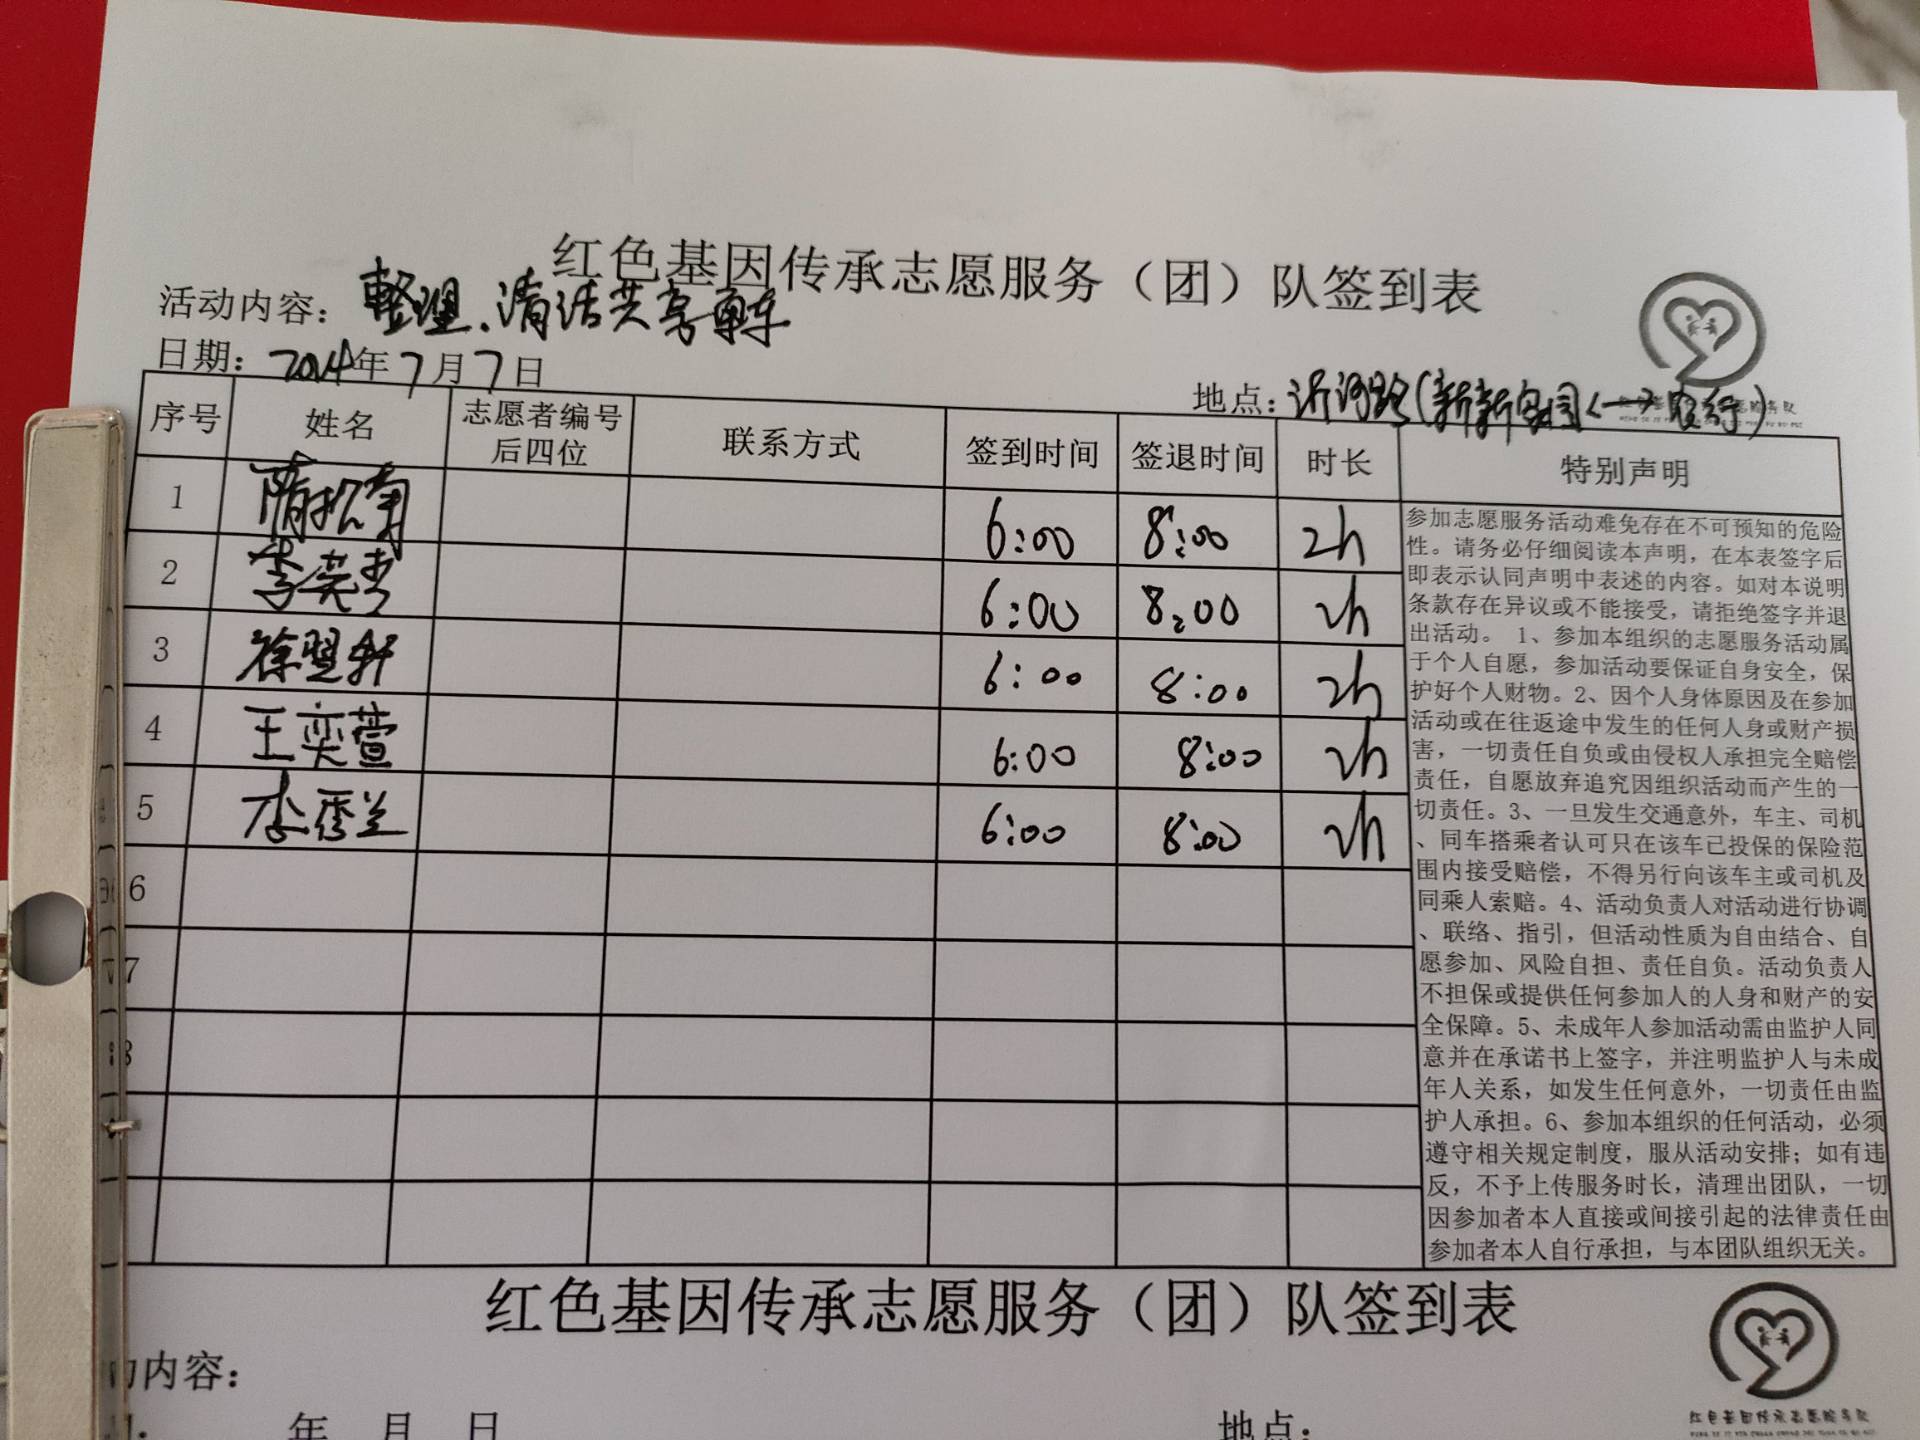 红色基因传承志愿服务（团）队签到表
活动内容：整理、清洁共享单车
日期：2024年7月7日
地点：沂河路(新新家园<—>农行)
序号 姓名 志愿者编号后四位 联系方式 签到时间 签退时间 时长 特别声明
1 隋松南 6:00 8:00 2h
2 李英 6:00 8:00 2h
3 徐翌轩 6:00 8:00 2h
4 王奕萱 6:00 8:00 2h
5 李秀兰 6:00 8:00 2h
6
7
8
参加志愿服务活动难免存在不可预知的危险
性。请务必仔细阅读本声明，在本表签字后
即表示认同声明中表述的内容。如对本说明
条款存在异议或不能接受，请拒绝签字并退
出活动。 1、参加本组织的志愿服务活动属
于个人自愿，参加活动要保证自身安全，保
护好个人财物。2、因个人身体原因及在参加
活动或在往返途中发生的任何人身或财产损
害，一切责任自负或由侵权人承担完全赔偿
责任，自愿放弃追究因组织活动而产生的一
切责任。3、一旦发生交通意外，车主、司机
、同车搭乘者认可只在该车已投保的保险范
围内接受赔偿，不得另行向该车主或司机及
同乘人索赔。4、活动负责人对活动进行协调
、联络、指引，但活动性质为自由结合、自
愿参加、风险自担、责任自负。活动负责人
不担保或提供任何参加人的人身和财产的安
全保障。5、未成年人参加活动需由监护人同
意并在承诺书上签字，并注明监护人与未成
年人关系，如发生任何意外，一切责任由监
护人承担。6、参加本组织的任何活动，必须
遵守相关规定制度，服从活动安排；如有违
反，不予上传服务时长，清理出团队，一切
因参加者本人直接或间接引起的法律责任由
参加者本人自行承担，与本团队组织无关。
红色基因传承志愿服务（团）队签到表
内容：
年 月 日
地点：
红色基因传承志愿服务队